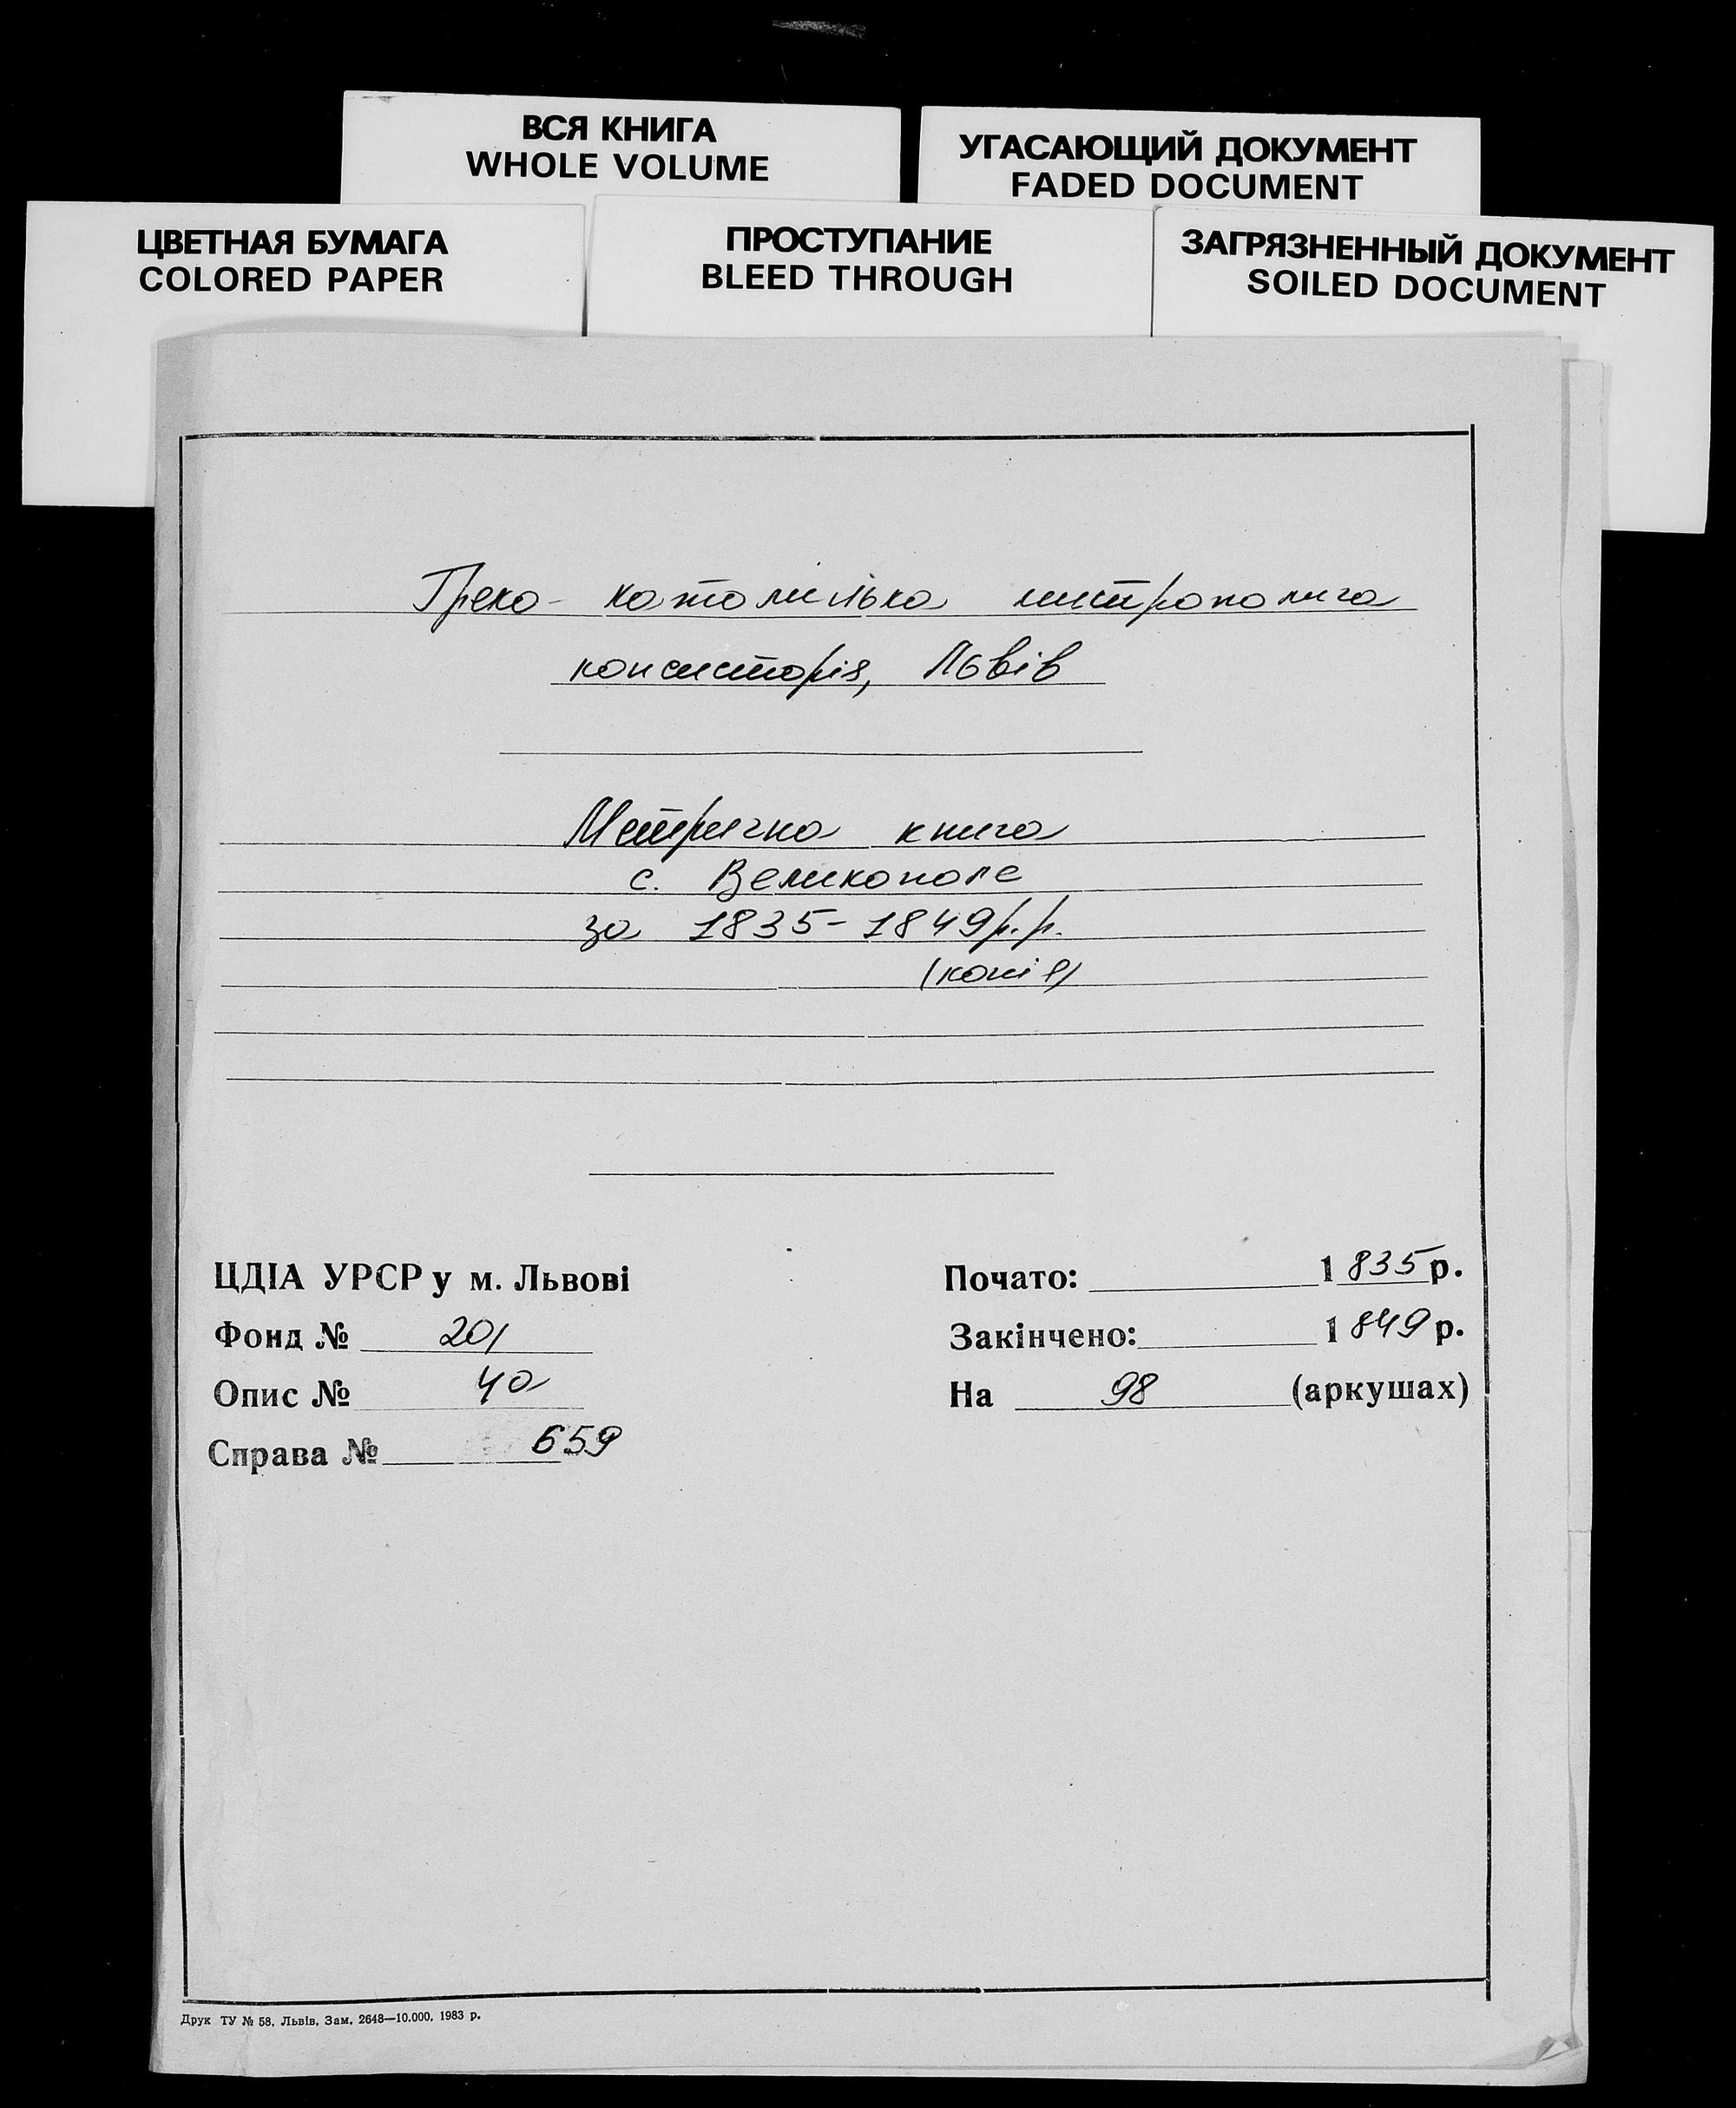 ВСЯ КНИГА
WHOLE VOLUME
УГАСАЮЩИЙ ДОКУМЕНТ
FADED DOCUMENT
ЦВЕТНАЯ БУМАГА
COLORED PAPER
ПРОСТУПАНИЕ
BLEED THROUGH
ЗАГРЯЗНЕННЫЙ ДОКУМЕНТ
SOILED DOCUMENT
Греко-католицька митрополича
консисторія, Львів
Метрична книга
с. Великополе
за 1835-1849р.р.
(копія)
ЦДІА УРСР у м. Львові
Фонд № 201
Опис № 40
Справа № 659
Почато: 1835 р.
Закінчено: 1849 р.
На 98 (аркушах)
Друк ТУ № 58. Львів. Зам. 2648—10.000. 1983 р.